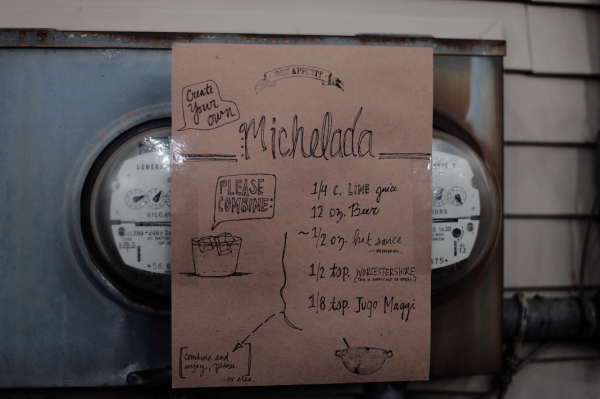 BON APPETIT
Create
Your
OWN
Michelada
PLEASE
COMBINE:
1/4 c. LIME juice
12 oz. Beer
~ 1/2 oz. hot sauce
1/2 tsp. WORCESTERSHIRE
1/8 tsp. Jugo Maggi
[combine and
enjoy, please.]
...or else.
GENER
KILO
200